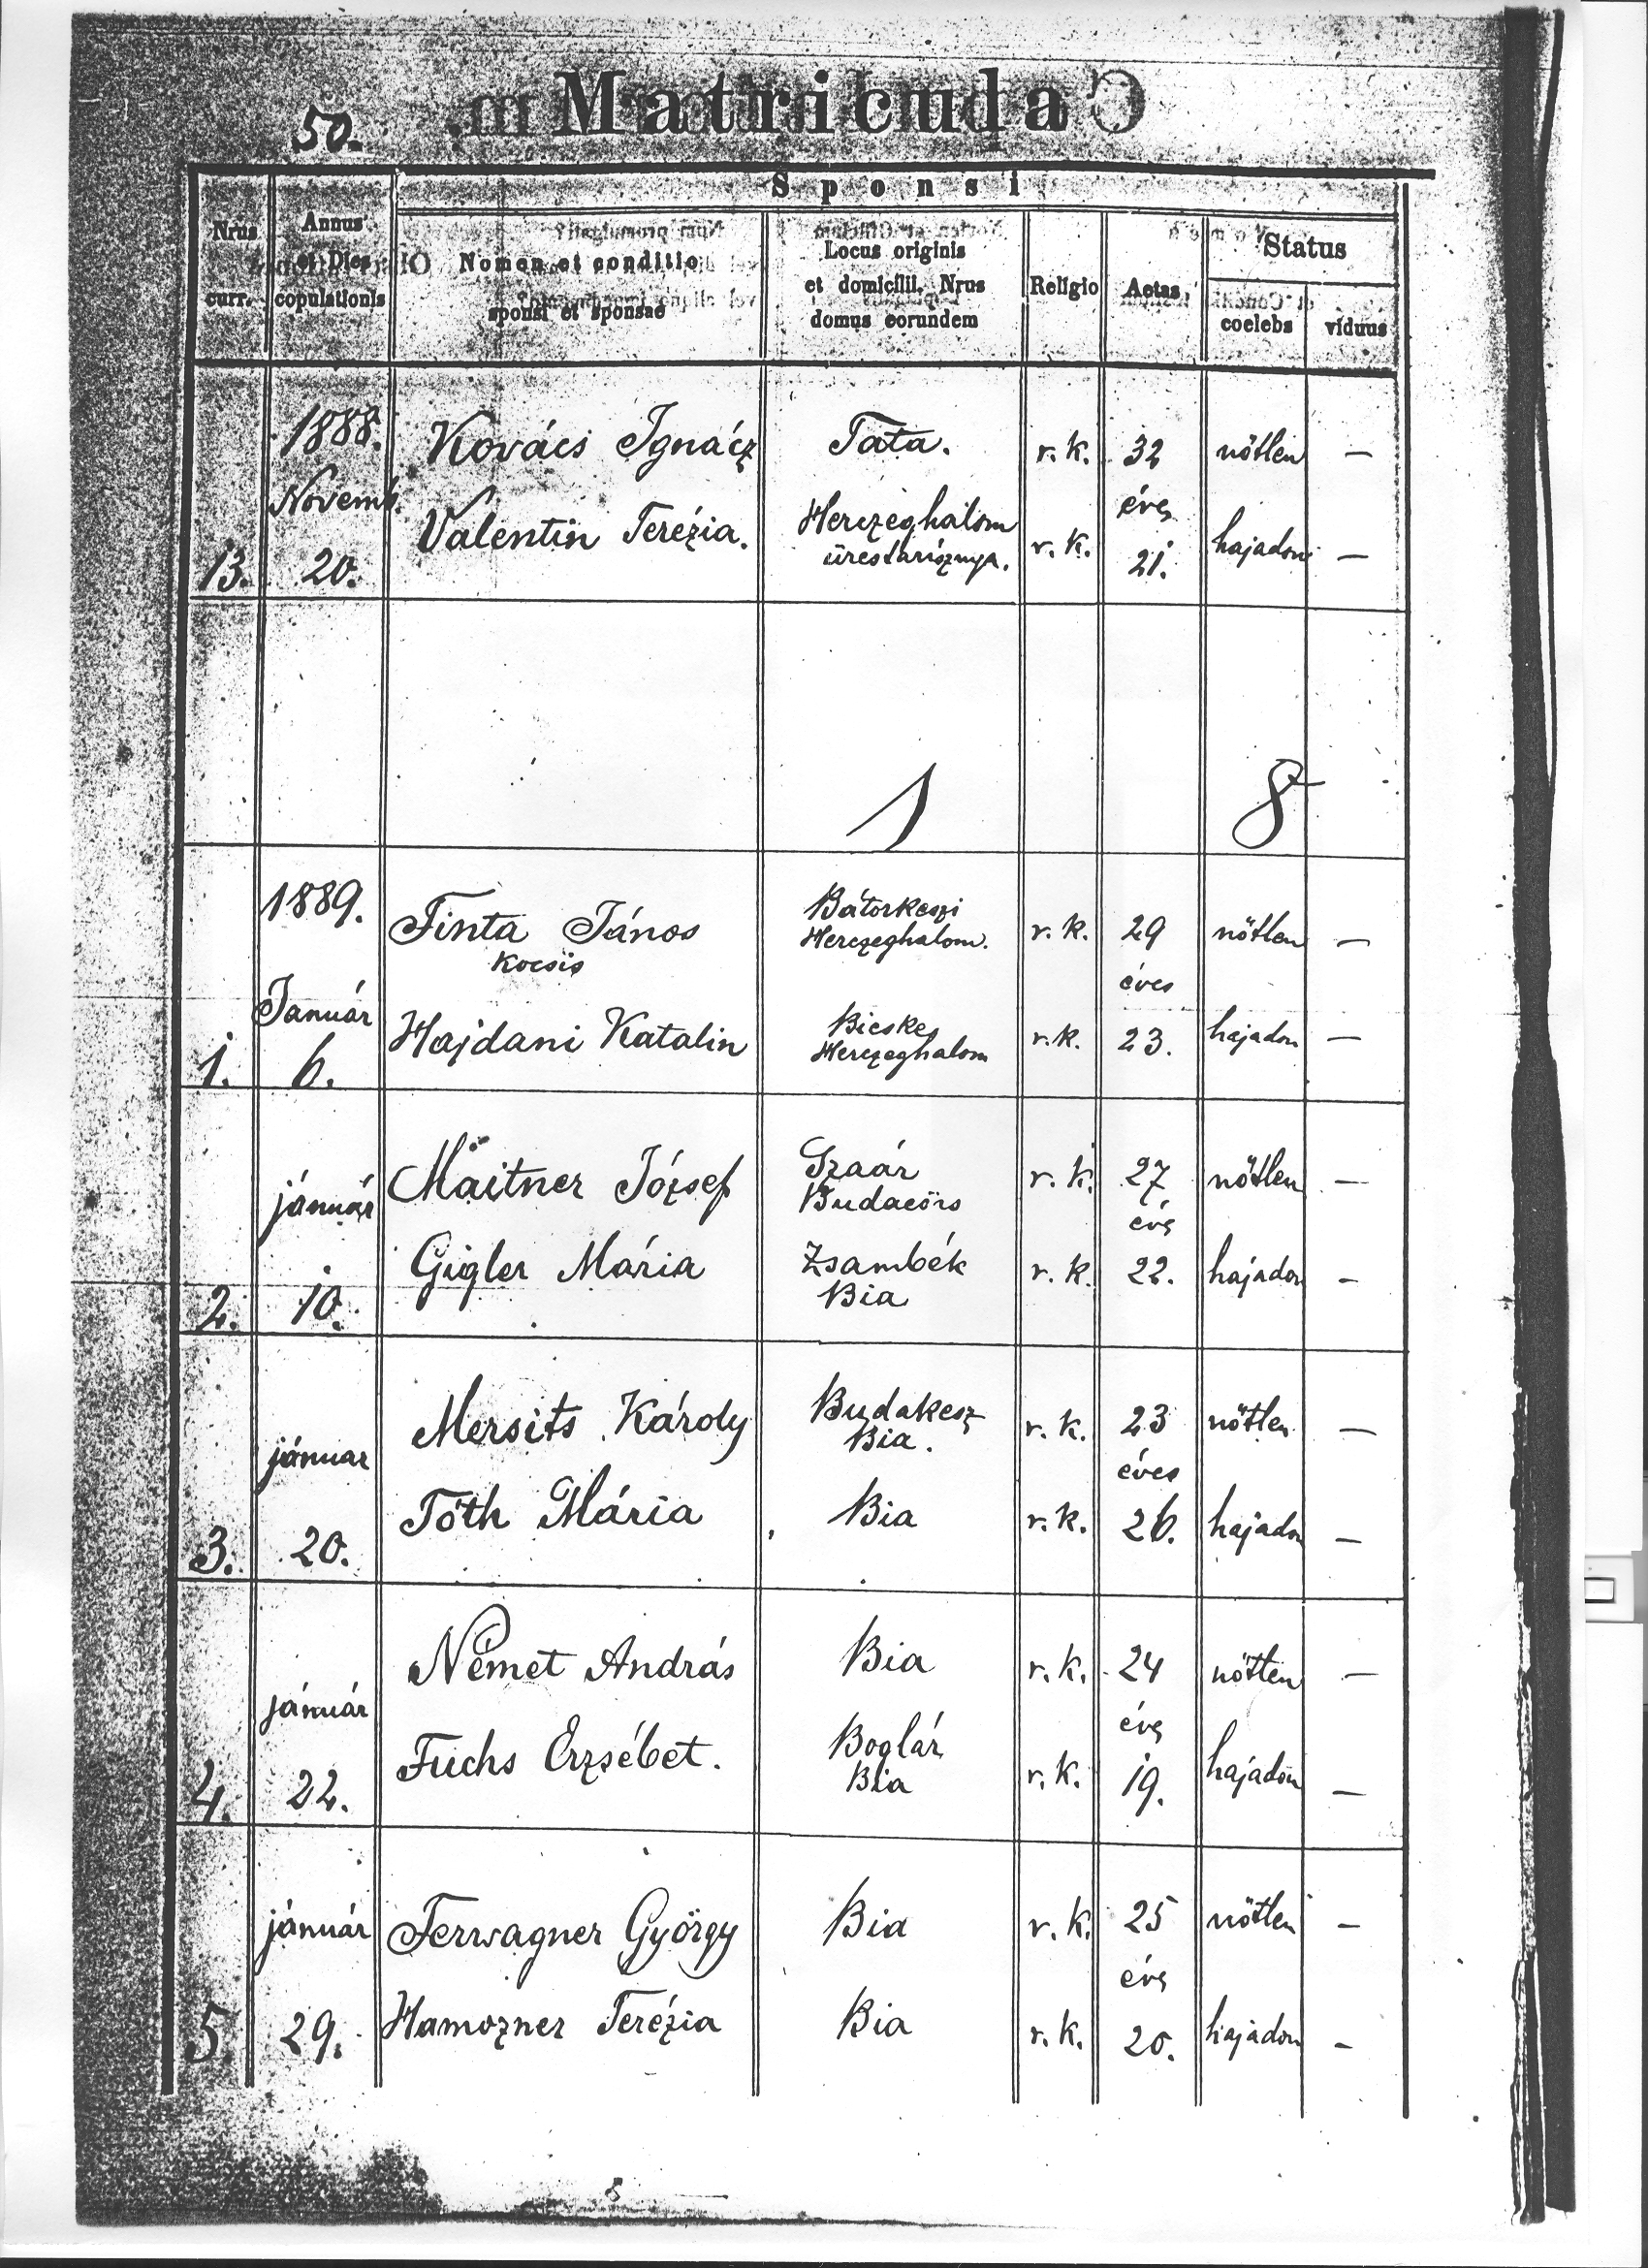 50.
Matricula
Sponsi
Nrus curr.
Annus et Dies copulationis
Nomen et conditio sponsi et sponsae
Locus originis et domicilii. Nrus domus eorundem
Religio
Aetas
Status
coelebs
viduus
1888.
Kovács Ignácz Tata. r. k. 32 nőtlen —
Novemb. éves
Valentin Terézia. Herczeghalom r. k. 21. hajadon —
13. 20.
1 8
1889.
Finta János Bátorkeszi r. k. 29 nőtlen —
Kocsis Herczeghalom.
éves
Január
Hajdani Katalin Bicske r. k. 23. hajadon —
Herczeghalom
1. 6.
Maitner József Szaár r. k. 27 nőtlen —
január Budaeörs
év
Gigler Mária Zsambék r. k. 22. hajadon —
Bia
2. 10.
Mersits Károly Budakesz r. k. 23 nőtlen —
Bia.
január éves
Tóth Mária Bia r. k. 26. hajadon —
3. 20.
Német András Bia r. k. 24 nőtlen —
január év
Fuchs Erzsébet. Boglár r. k. 19. hajadon —
Bia
4. 22.
január Ferwagner György Bia r. k. 25 nőtlen —
év
Hamozner Terézia Bia r. k. 20. hajadon —
5. 29.